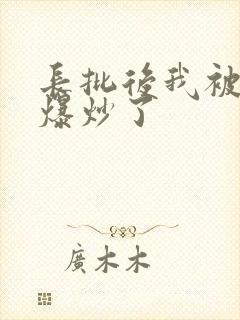 長批後我被
爆炒了
廣木木